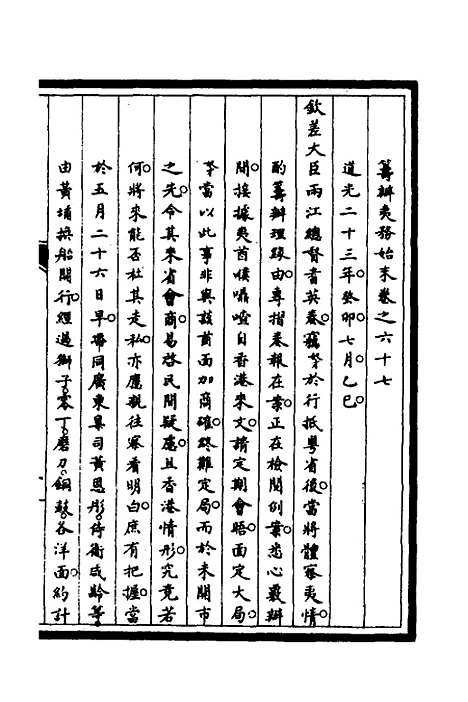 籌辦夷務始末卷之六十七
道光二十三年癸卯七月乙巳。
欽差大臣兩江總督耆英奏。竊奴才於行抵粵省後。當將體察夷情。
酌籌辦理疎由。專摺奏報在案。正在檢閱例案。悉心覈辦
間。接據夷酋㗋囁喳自香港來文。請定期會晤。面定大局。
奴才當以此事非與該酋面加商確。終難定局。而於未開市
之先。令其來省會商。易啓民間疑慮。且香港情形。究竟若
何。將來能否杜其走私。亦應親往察看明白。庶有把握。當
於五月二十六日早。帶同廣東臬司黃恩彤。侍衛咸齡等。
由黃埔換船開行。經過獅子。零丁。磨刀。銅鼓。各洋面。約計